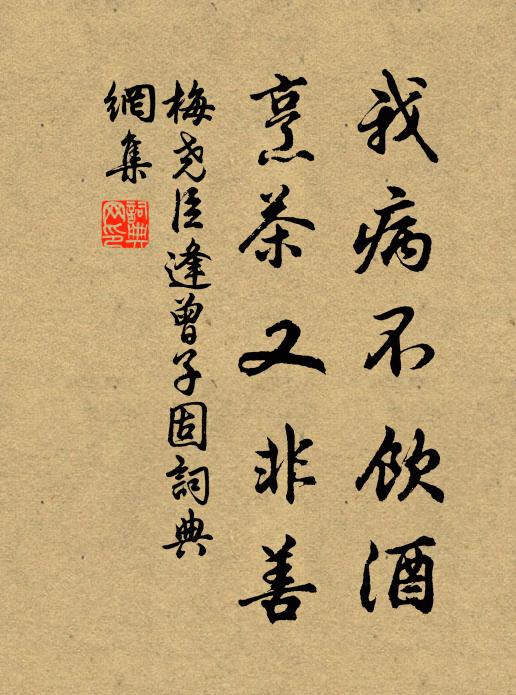 我病不飲酒
烹茶又非善
梅尧臣逢曾子固詞典
網集
詞典
网印